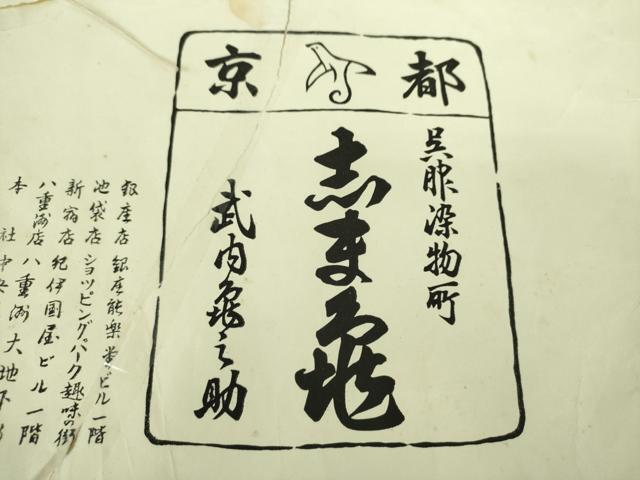 京都
呉服染物所
志ま亀
武内亀之助
銀座店 銀座能楽堂ビル一階
池袋店 ショッピングパーク趣味の街
新宿店 紀伊國屋ビル一階
八重洲店 八重洲大地下
本社 中央